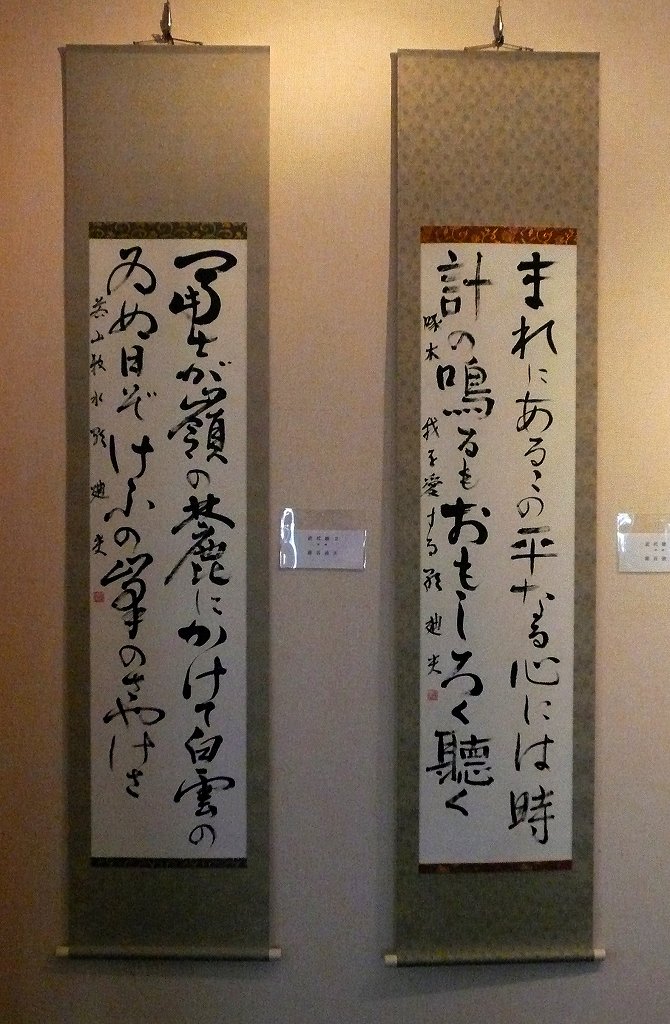 まれにあるこの平なる心には時
計の鳴るもおもしろく聴く
啄木 我を愛する歌
富士が嶺の麓にかけて白雲の
ゐぬ日ぞけふの峯のさやけさ
若山牧水歌